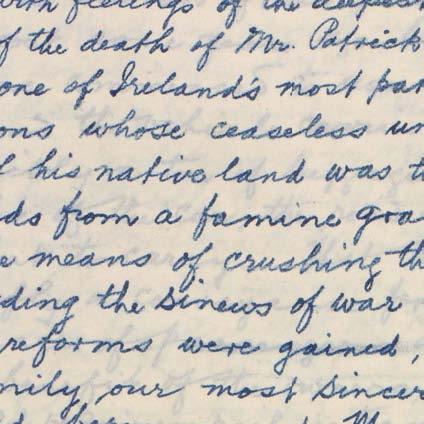 with feelings of the deepest
of the death of Mr. Patrick
one of Ireland's most pat
ons whose ceaseless un
f his native land was t
ds from a famine gra
e means of crushing th
ding the sinews of war
reforms were gained,
mily our most sincer